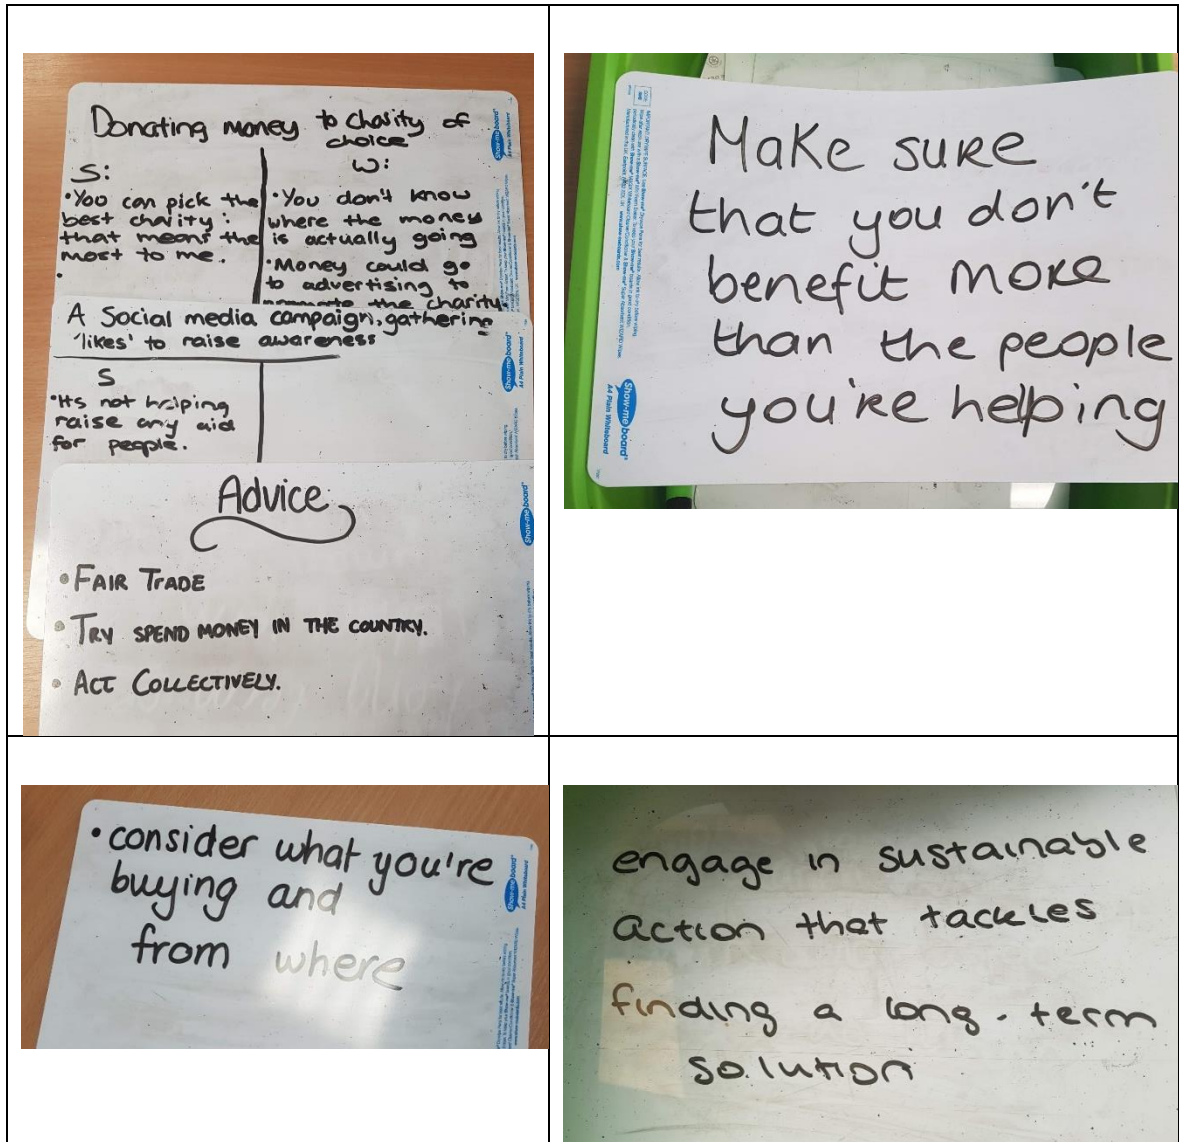 Donating money to charity of
choice
S:
• You can pick the
best charity
that means the
most to me.
•
W:
• You don't know
where the money
is actually going
• Money could go
to advertising to
promote the charity.
Show-me board®
A4 Plain Whiteboard
A Social media campaign, gathering
'likes' to raise awareness
S
• Its not helping
raise any aid
for people.
Show-me board®
A4 Plain Whiteboard
Advice
• FAIR TRADE
• TRY SPEND MONEY IN THE COUNTRY.
• ACT COLLECTIVELY.
Show-me board®
Make sure
that you don't
benefit more
than the people
you're helping
Show-me board®
A4 Plain Whiteboard
• consider what you're
buying and
from where
Show-me board®
A4 Plain Whiteboard
engage in sustainable
action that tackles
finding a long-term
solution